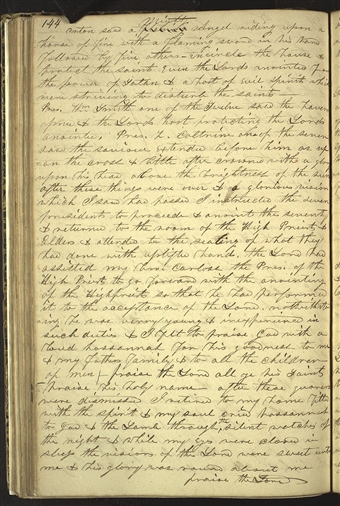 144
Anton saw a Mighty Angel riding upon a
horse of fire with a flaming sword in his hand
followed by five others encircle the house &
protect the saints even the Lords anointed from
the power of Satan & a host of evil spirits which
were striving to disturb the saints
Pres. Wm Smith one of the Twelve saw the heavens
open & the Lords host protecting the Lords
anointed, Pres. Z. Coltrin one of the seven
saw the saviour extended before him as up
on the cross & little after crowned with a glory
upon his head above the brightness of the sun
after these things were over & a glorious vision
which I saw had passed I instructed the seven
presidents to proceed & anoint the seventy
& returned to the room of the High Priests &
Elders & attended to the sealing of what they
had done with uplifted hands, the Lord had
assisted my bro. Carloss the Pres. of the
High Priests to go forward with the anointing
of the High priests so that he had performed
it to the acceptance of the Lord, notwithstand
ing he was very young & inexperienced in
such duties & I felt to praise God with a
loud hossannah for his goodness to me
& my fathers family & to all the children
of men - praise the Lord all ye his saints
- praise his holy name after these quorums
were dismissed I retired to my home filled
with the spirit & my soul cried hossannah
to God & the Lamb through silent watches of
the night & while my eyes were closed in
sleep the visions of the Lord were sweet unto
me & his glory was round about me
praise the Lord